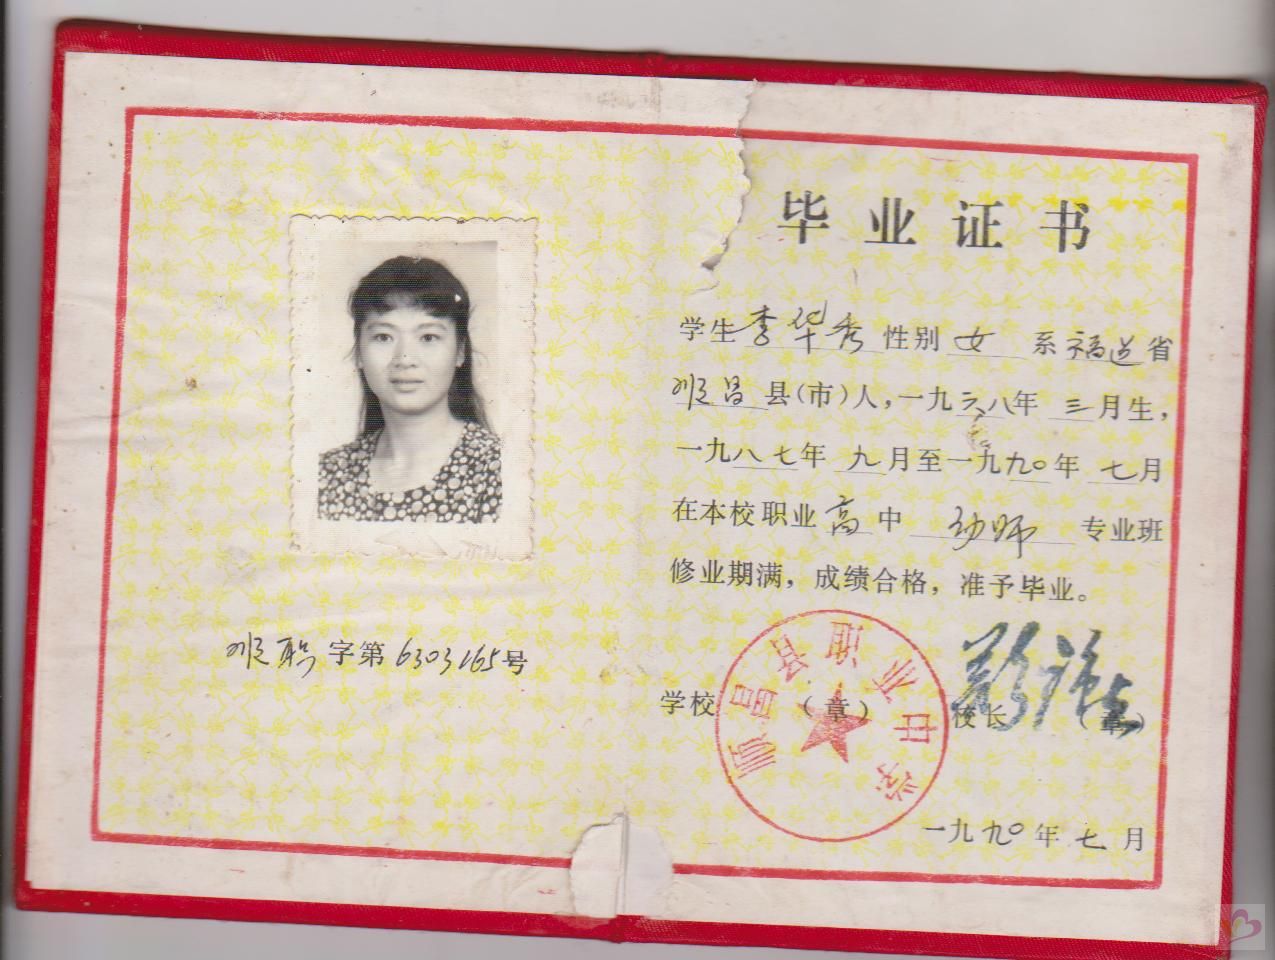 毕业证书
学生李华秀性别女系福建省
顺昌县(市)人,一九六八年三月生,
一九八七年九月至一九九〇年七月
在本校职业高中幼师专业班
修业期满，成绩合格，准予毕业。
顺职字第6303165号
学校（章）校长（章）
顺昌省
中学
一九九〇年七月